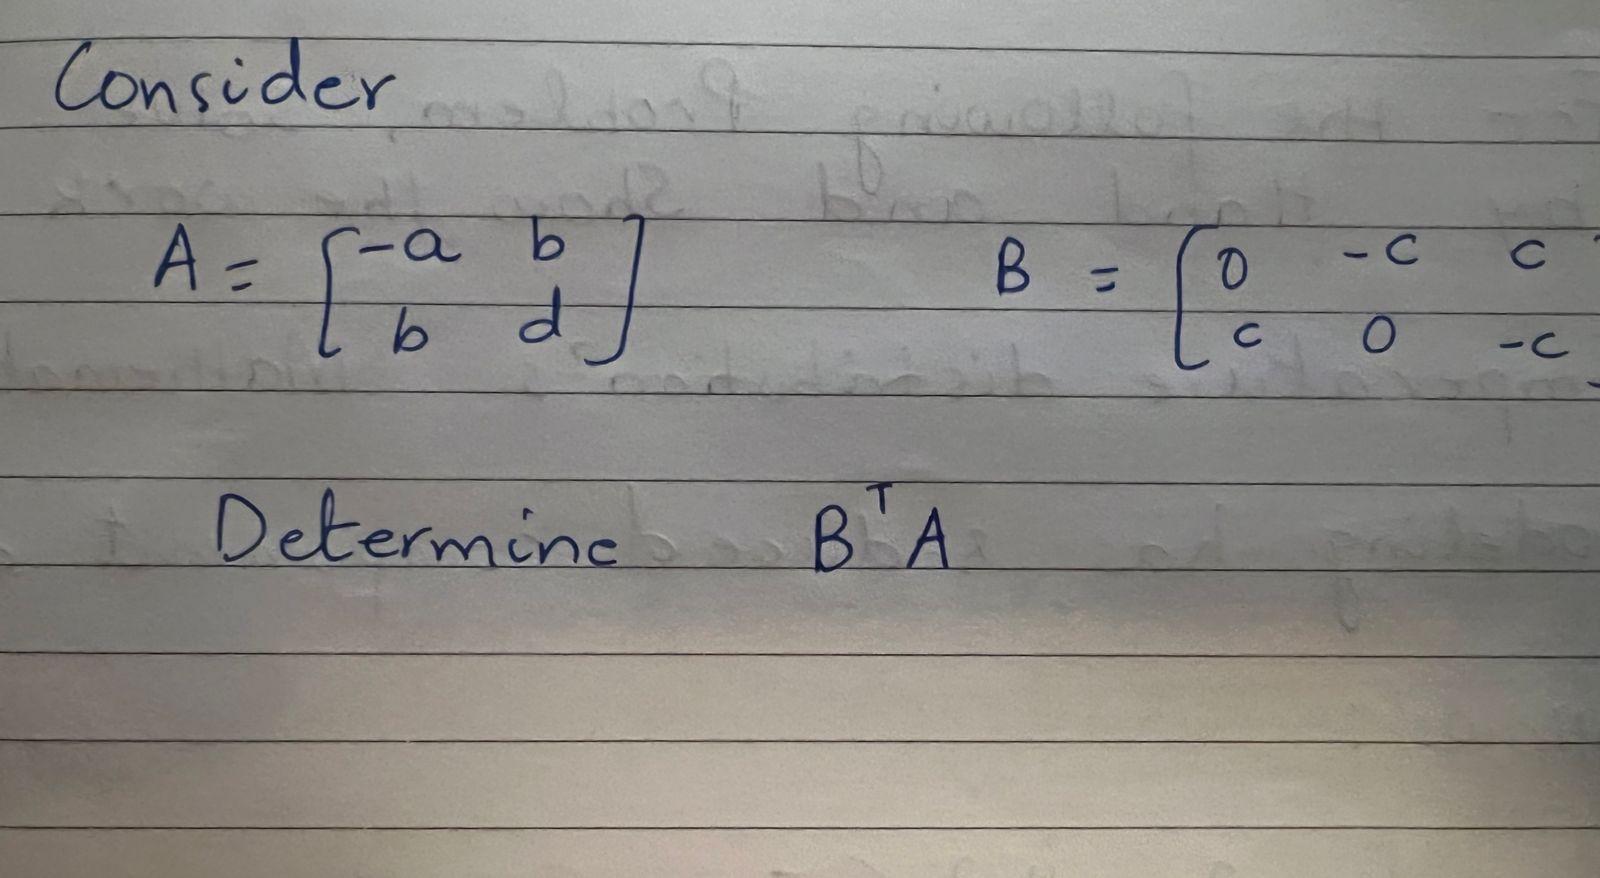 Consider
A = [ -a b ; b d ] B = [ 0 -c c ; c 0 -c ]
Determine BᵀA